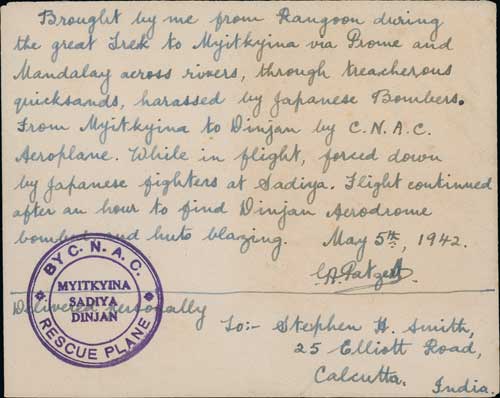 Brought by me from Rangoon during
the great Trek to Myitkyina via Prome and
Mandalay across rivers, through treacherous
quicksands, harassed by Japanese Bombers.
From Myitkyina to Dinjan by C.N.A.C.
Aeroplane. While in flight, forced down
by Japanese fighters at Sadiya. Flight continued
after an hour to find Dinjan Aerodrome
bombed and huts blazing. May 5th, 1942.
BY C.N.A.C.
MYITKYINA
SADIYA
DINJAN
RESCUE PLANE
Delivered Personally
To:- Stephen H. Smith,
25 Elliott Road,
Calcutta.
India.